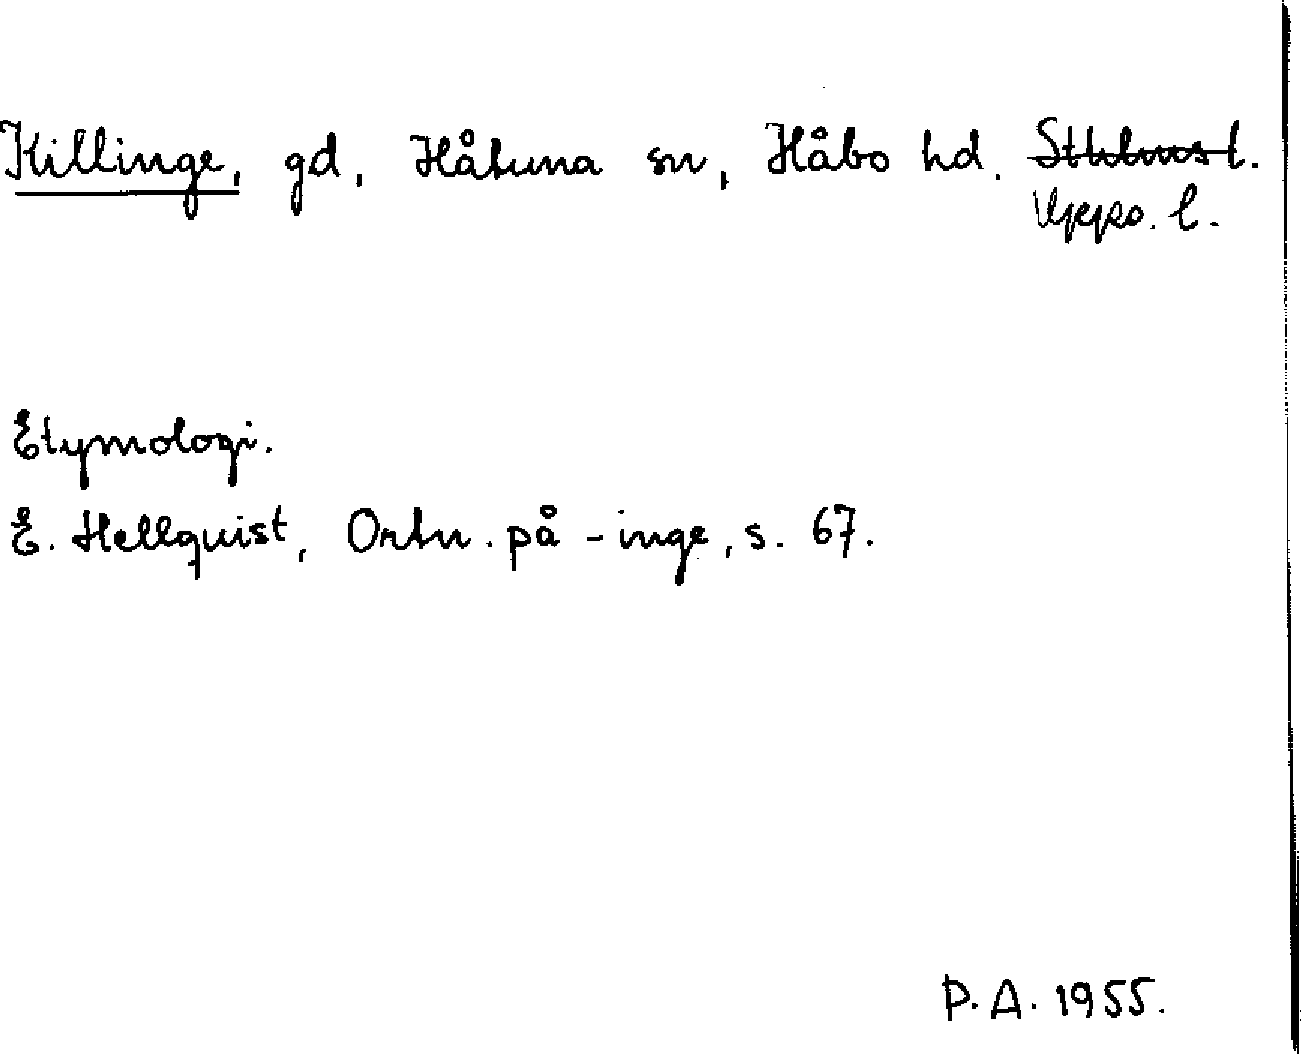 Killinge, gd, Håtuna sn, Håbo hd. Sthlms l.
Upps. l.
Etymologi.
E. Hellquist, Ortn. på -inge, s. 67.
P.A. 1955.